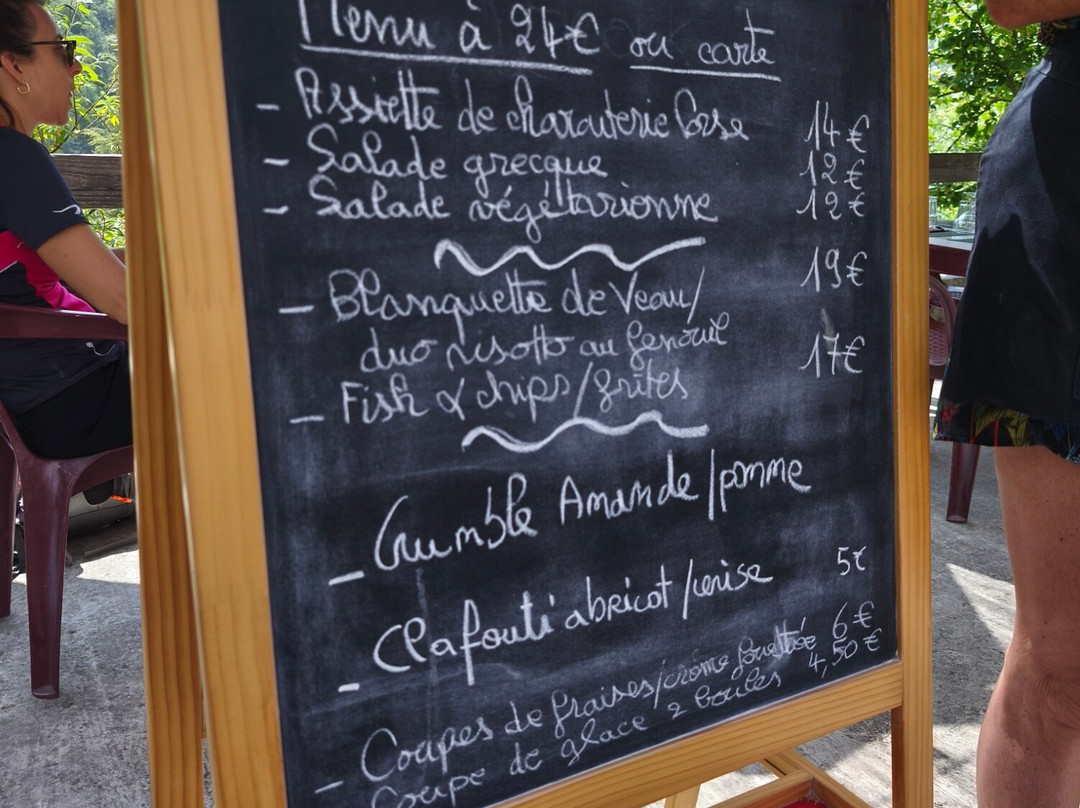 Menu à 24€ ou carte
- Assiette de charcuterie Corse 14€
- Salade grecque 12€
- Salade végétarienne 12€
- Blanquette de Veau/ 19€
duo risotto au fenouil
- Fish & chips/frites 17€
- Crumble Amande/pomme
- Clafouti abricot/cerise 5€
- Coupes de fraises/crème fouettée 6€
Coupe de glace 2 boules 4,50€